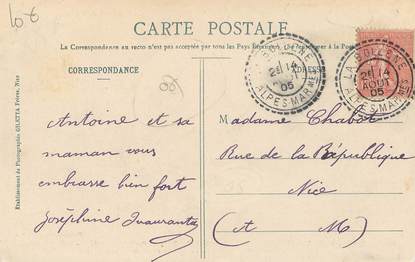 10 €
CARTE POSTALE
La Correspondance au recto n'est pas acceptée par tous les Pays Étrangers. (Se renseigner à la Poste)
CORRESPONDANCE
ADRESSE
LA BOLLENE
2E 14
AOUT
05
ALPES-MARMES
LA BOLLENE
2E 14
AOUT
05
ALPES-MARMES
Antoine et sa
maman vous
embrasse bien fort
Joséphine
Madame Chabot
Rue de la République
Nice
(A M)
Etablissement de Photographie GILETTA Frères, Nice